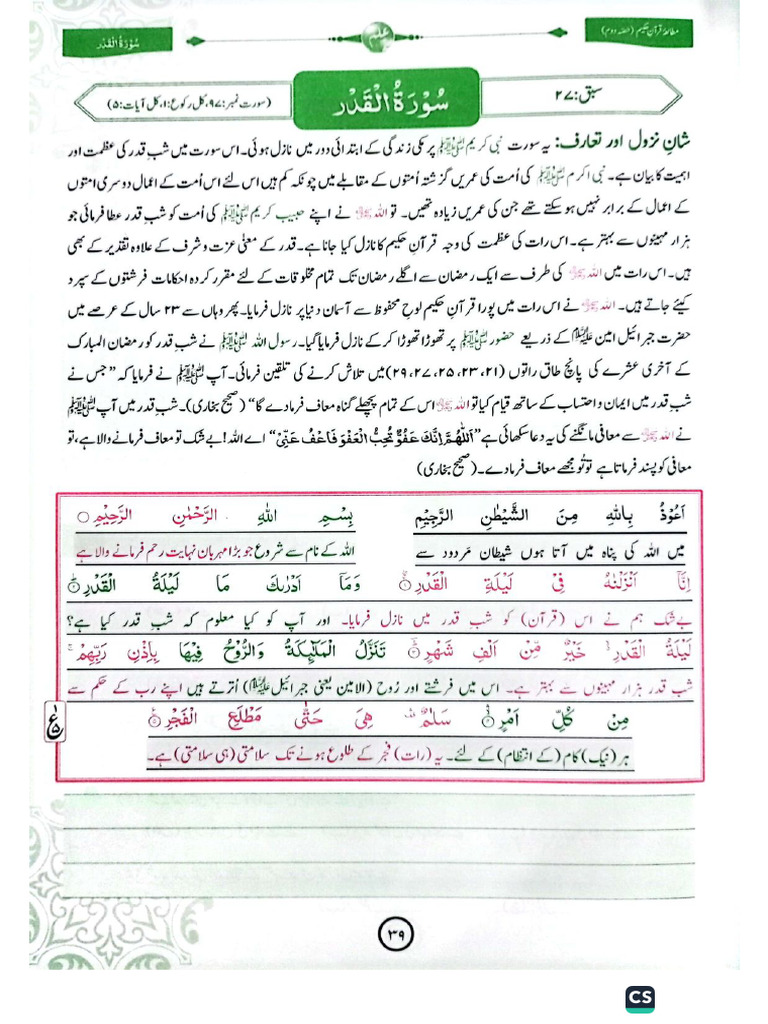 مطالعۂ قرآن حکیم (حصہ دوم)
علم
سُوْرَۃُ الْقَدْر
سبق: ۲۷
سُوْرَۃُ الْقَدْر
(سورت نمبر: ۹۷، کل رکوع: ۱، کل آیات: ۵)
شانِ نزول اور تعارف: یہ سورت نبی کریم ﷺ پر مکی زندگی کے ابتدائی دور میں نازل ہوئی۔ اس سورت میں شبِ قدر کی عظمت اور
اہمیت کا بیان ہے۔ نبی اکرم ﷺ کی اُمت کی عمریں گزشتہ اُمتوں کے مقابلے میں چونکہ کم ہیں اس لئے اس اُمت کے اعمال دوسری امتوں
کے اعمال کے برابر نہیں ہو سکتے تھے جن کی عمریں زیادہ تھیں۔ تو اللہ ﷻ نے اپنے حبیب کریم ﷺ کی اُمت کو شبِ قدر عطا فرمائی جو
ہزار مہینوں سے بہتر ہے۔ اس رات کی عظمت کی وجہ قرآنِ حکیم کا نازل کیا جانا ہے۔ قدر کے معنیٰ عزت و شرف کے علاوہ تقدیر کے بھی
ہیں۔ اس رات میں اللہ ﷻ کی طرف سے ایک رمضان سے اگلے رمضان تک تمام مخلوقات کے لئے مقرر کردہ احکامات فرشتوں کے سپرد
کیئے جاتے ہیں۔ اللہ ﷻ نے اس رات میں پورا قرآنِ حکیم لوحِ محفوظ سے آسمان دنیا پر نازل فرمایا۔ پھر وہاں سے ۲۳ سال کے عرصے میں
حضرت جبرائیل امین علیہ السلام کے ذریعے حضور ﷺ پر تھوڑا تھوڑا کر کے نازل فرمایا گیا۔ رسول اللہ ﷺ نے شبِ قدر کو رمضان المبارک
کے آخری عشرے کی پانچ طاق راتوں (۲۱، ۲۳، ۲۵، ۲۷، ۲۹) میں تلاش کرنے کی تلقین فرمائی۔ آپ ﷺ نے فرمایا کہ ”جس نے
شبِ قدر میں ایمان و احتساب کے ساتھ قیام کیا تو اللہ ﷻ اس کے تمام پچھلے گناہ معاف فرمادے گا“ (صحیح بخاری)۔ شبِ قدر میں آپ ﷺ
نے اللہ ﷻ سے معافی مانگنے کی یہ دعا سکھائی ہے ”اَللّٰهُمَّ اِنَّكَ عَفُوٌّ تُحِبُّ الْعَفْوَ فَاعْفُ عَنِّيْ“ اے اللہ! بے شک تو معاف فرمانے والا ہے، تو
معافی کو پسند فرماتا ہے تو تُو مجھے معاف فرمادے۔ (صحیح بخاری)
اَعُوْذُ بِاللّٰهِ مِنَ الشَّيْطٰنِ الرَّجِيْمِ بِسْمِ اللّٰهِ الرَّحْمٰنِ الرَّحِيْمِ ○
میں اللہ کی پناہ میں آتا ہوں شیطان مَردود سے اللہ کے نام سے شروع جو بڑا مہربان نہایت رحم فرمانے والا ہے
اِنَّاۤ اَنْزَلْنٰهُ فِيْ لَيْلَةِ الْقَدْرِ ۝۱ وَمَاۤ اَدْرٰىكَ مَا لَيْلَةُ الْقَدْرِ ۝۲
بےشک ہم نے اس (قرآن) کو شبِ قدر میں نازل فرمایا۔ اور آپ کو کیا معلوم کہ شبِ قدر کیا ہے؟
لَيْلَةُ الْقَدْرِ خَيْرٌ مِّنْ اَلْفِ شَهْرٍ ۝۳ تَنَزَّلُ الْمَلٰٓئِكَةُ وَالرُّوْحُ فِيْهَا بِاِذْنِ رَبِّهِمْ ۚ
شبِ قدر ہزار مہینوں سے بہتر ہے۔ اس میں فرشتے اور رُوح (الامین یعنی جبرائیل علیہ السلام) اُترتے ہیں اپنے رب کے حکم سے
مِنْ كُلِّ اَمْرٍ ۝۴ سَلٰمٌ هِيَ حَتّٰى مَطْلَعِ الْفَجْرِ ۝۵
ہر (نیک) کام (کے انتظام) کے لئے۔ یہ (رات) فجر کے طلوع ہونے تک سلامتی (ہی سلامتی) ہے۔
۳۹
CS